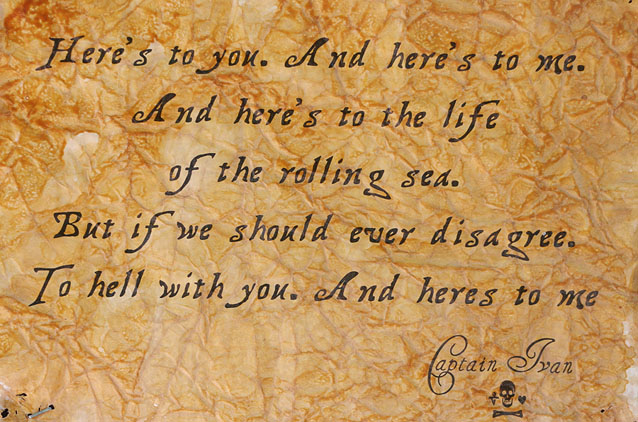 Here's to you. And here's to me.
And here's to the life
of the rolling sea.
But if we should ever disagree.
To hell with you. And heres to me
Captain Ivan